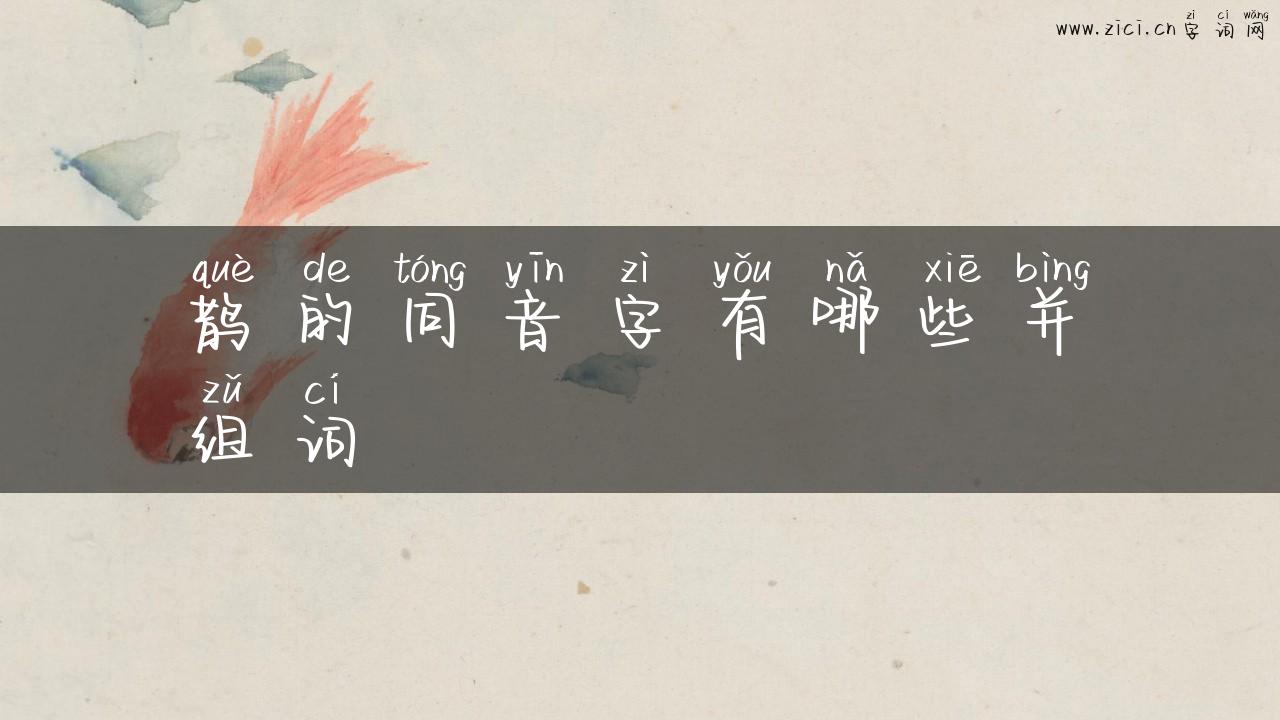 zì cí wǎng
www.zici.cn 字 词 网
què de tóng yīn zì yǒu nǎ xiē bìng
鹊 的 同 音 字 有 哪 些 并
zǔ cí
组 词